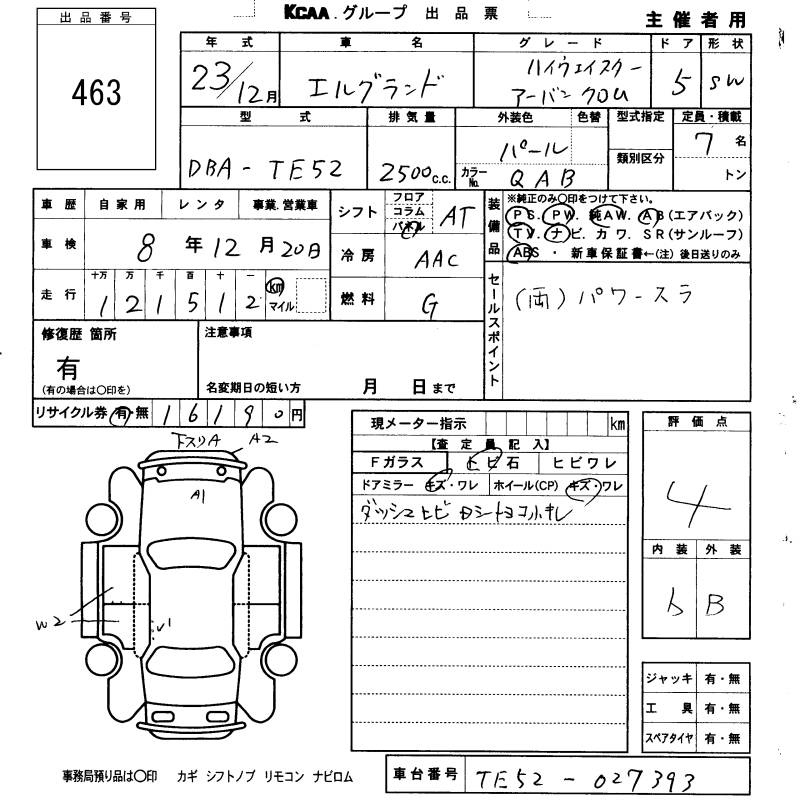 KCAA.グループ 出品票
主催者用
出品番号
463
年式 車名 グレード ドア 形状
23/12月 エルグランド ハイウェイスター アーバンクロム 5 SW
型式 排気量 外装色 色替 型式指定 定員・積載
DBA-TE52 2500c.c. パール 7名
カラーNo. QAB 類別区分 トン
車歴 自家用 レンタ 事業.営業車
シフト フロア コラム パネル AT
装備品
※純正のみ〇印をつけて下さい。
PS. PW. 純AW. AB(エアバック)
TV. ナビ. カワ. SR(サンルーフ)
ABS・新車保証書←(注)後日送りのみ
車検 8年12月20日
冷房 AAC
走行 十万 万 千 百 十 一
121512 km マイル
燃料 G
セールスポイント
(両)パワースラ
修復歴 箇所
有
(有の場合は〇印を)
注意事項
名変期日の短い方 月 日まで
リサイクル券 有・無 16190円
現メーター指示 km
【査定員記入】
Fガラス トビ石 ヒビワレ
ドアミラー キズ・ワレ ホイール(CP) キズ・ワレ
ダッシュヒビ Dシートヨコ小キレ
評価点
4
内装 外装
b B
下スリA A2
A1
W2 U1
ジャッキ 有・無
工具 有・無
スペアタイヤ 有・無
事務局預り品は〇印 カギ シフトノブ リモコン ナビロム
車台番号 TE52-027393